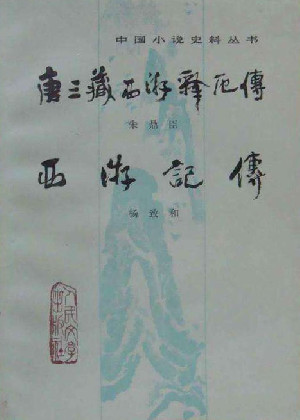 中国小说史料丛书
唐三藏西游释厄傳
朱鼎臣
西游記傳
杨致和
人民文学
出版社